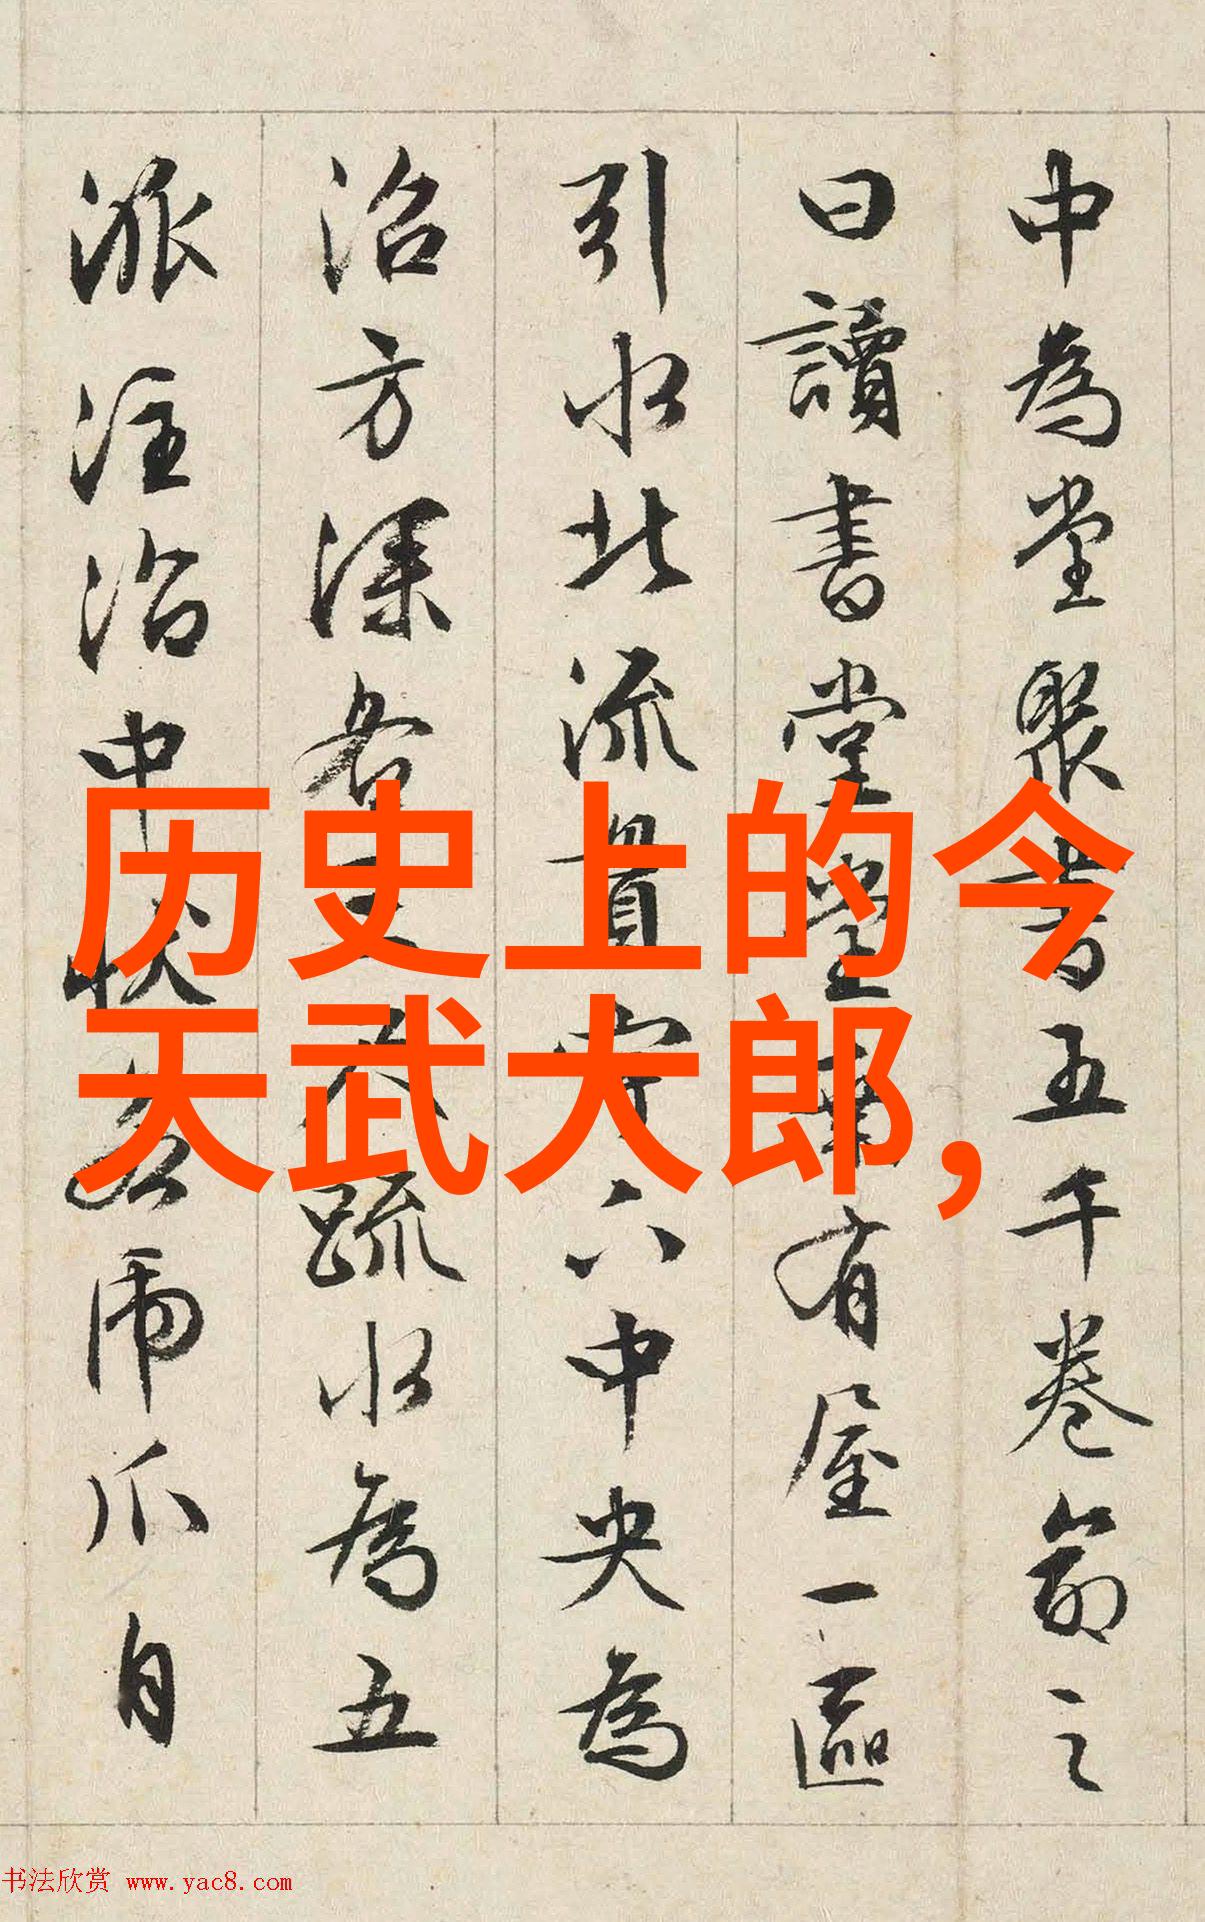 中為堂聚書五千卷命之
曰讀書堂堂南有屋一區
引水北流貫宇下中央為
沼方深各三尺疏水為五
派注沼中狀若虎爪自
历史上的今
天武大郎,
书法欣赏 www.yac8.com